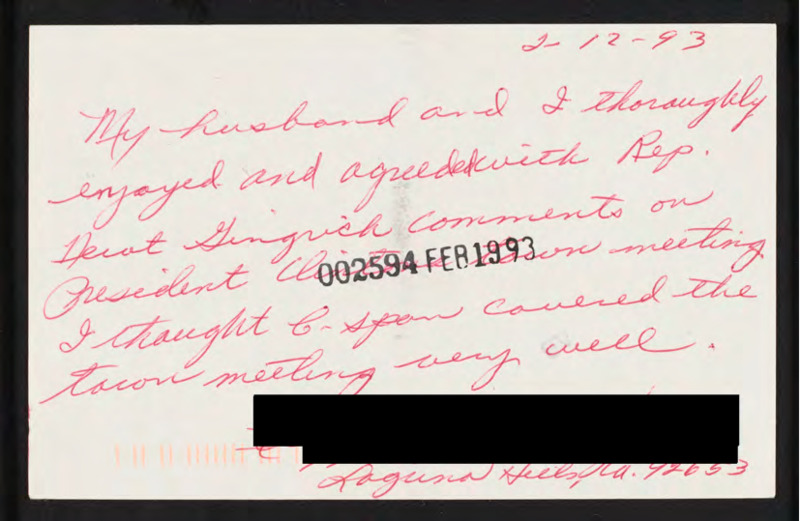 2-12-93
My husband and I thoroughly
enjoyed and agreed with Rep.
Newt Gingrich comments on
President Clinton's town meeting
002594 FEB 1993
I thought C-span covered the
town meeting very well.
Laguna Hills, Ca. 92653